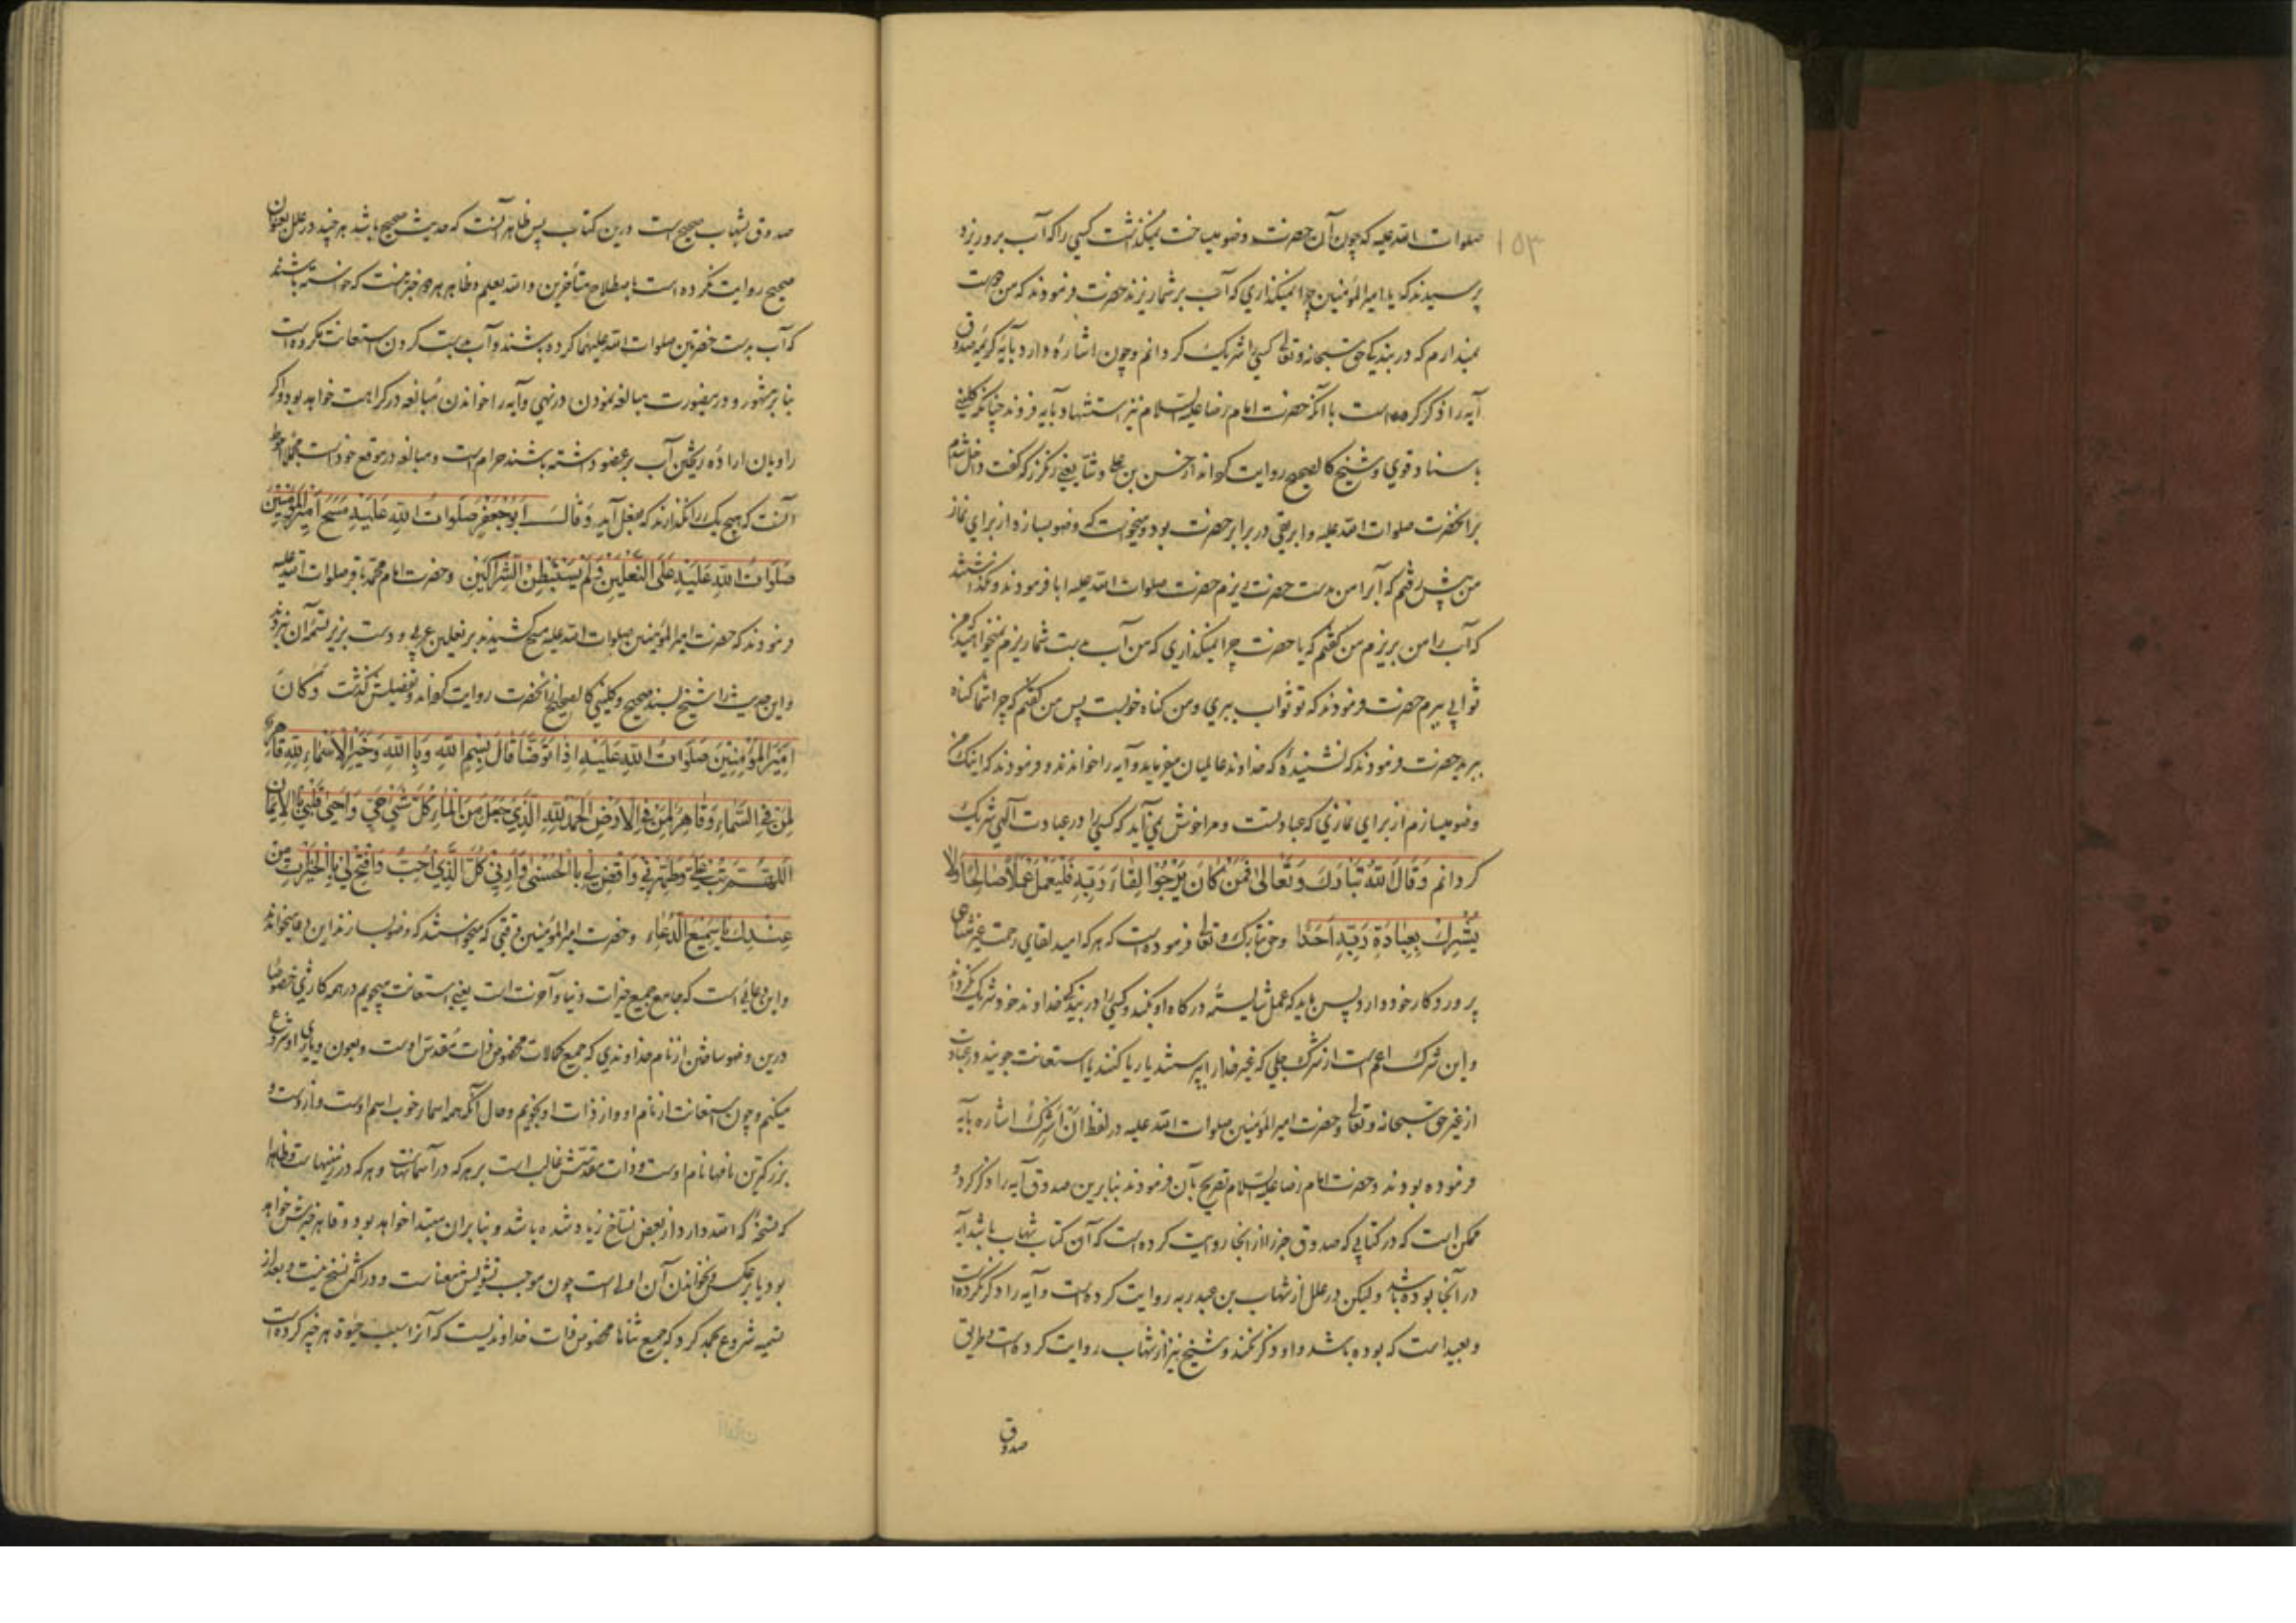 ۱۵۳
صلوات الله علیه که چون آن حضرت وضو میساخت نمیکذاشت کسی را که آب برو ریزد
پرسیدند که یا امیر المؤمنین چرا نمیکذاری که آب بر شما ریزند حضرت فرمودند که من دوست
نمیدارم که در بندکی حق سبحانه و تعالی کسی را شریک کردانم و چون اشاره دارد بآیه کریمه صدوق
آیه را ذکر کرده است با آنکه حضرت امام رضا علیه السلام نیز استشهاد بآیه فرموند چنانکه کلینی
باسناد قوی و شیخ کالصحیح روایت کرده‌اند از حسن بن علی وشّا یعنی رنکرز که کفت داخل شدم
بر آنحضرت صلوات الله علیه و ابریقی در برابر حضرت بود و میخواست که وضو بسازد از برای نماز
من پیش رفتم که آبرا من بدست حضرت بریزم حضرت صلوات الله علیه ابا فرمودند و نکذاشتند
که آب را من بریزم من کفتم که یا حضرت چرا نمیکذاری که من آب بدست شما ریزم نمیخواهید که من
ثوابی ببرم حضرت فرمودند که تو ثواب ببری و من کناه خوبست پس من کفتم که چرا شما کناه
ببرید حضرت فرمودند که نشنیدهٔ که خداوند عالمیان میفرماید و آیه را خواندند و فرمودند که اینک من
وضو میسازم از برای نمازی که عبادتست و مرا خوش نمی‌آید که کسی را در عبادت الهی شریک
کردانم وَقَالَ اللهُ تَبَارَكَ وَتَعَالىٰ فَمَنْ كَانَ يَرْجُوا لِقَاءَ رَبِّهِ فَلْيَعْمَلْ عَمَلًا صَالِحًا وَلَا
يُشْرِكْ بِعِبَادَةِ رَبِّهِ أَحَدًا وحق تبارک و تعالی فرموده است که هر که امید لقای رحمت غیر متناهی
پروردکار خود دارد پس باید که عمل شایستهٔ درکاه او بکند و کسی را در بندکی خداوند خود شریک نکرداند
و این شرک اعم است از شرک جلی که غیر خدا را پرستند یا ریا کنند یا استعانت جویند در عبادت
از غیر حق سبحانه و تعالی و حضرت امیر المؤمنین صلوات الله علیه در لفظ ان اُشرِکَ اشاره بآیه
فرموده بودند و حضرت امام رضا علیه السلام تصریح بآن فرمودند بنابرین صدوق آیه را ذکر کرد و
ممکن است که در کتابی که صدوق خبر را از آنجا روایت کرده است که آن کتاب شهاب باشد آیه
در آنجا بوده باشد و لیکن در علل از شهاب بن عبد ربه روایت کرده است و آیه را ذکر نکرده است
و بعید است که بوده باشد و او ذکر نکند و شیخ نیز از شهاب روایت کرده است و طریق
صدوق
صدوق بشهاب صحیح است درین کتاب پس ظاهر آنست که حدیث صحیح باشد هر چند در علل بعنوان
صحیح روایت نکرده است باصطلاح متأخرین والله یعلم و ظاهر هر دو خبر آنست که خواسته باشند
که آب بدست حضرتین صلوات الله علیهما کرده باشند و آب بدست کردن استعانت مکروه است
بنا بر مشهور و درینصورت مبالغه نمودن در نهی و آیه را خواندن مبالغه در کراهت خواهد بود و اکر
راویان ارادهٔ ریختن آب بر عضو داشته باشند حرام است و مبالغه در موقع خود است مجملا احوط
آنست که هیچ یک را نکذارند که بفعل آید وَقَالَ أَبُو جَعْفَرٍ صَلَوَاتُ اللهِ عَلَيْهِ مَسَحَ أَمِيرُ الْمُؤْمِنِينَ
صَلَوَاتُ اللهِ عَلَيْهِ عَلَى النَّعْلَيْنِ وَلَمْ يَسْتَبْطِنِ الشِّرَاكَيْنِ وحضرت امام محمد باقر صلوات الله علیه
فرمودند که حضرت امیر المؤمنین صلوات الله علیه مسح کشیدند بر نعلین عربی و دست بزیر تسمهٔ آن نبردند
و این حدیث را شیخ بسند صحیح و کلینی کالصحیح از آنحضرت روایت کرده‌اند و تفصیلش کذشت وَكَانَ
أَمِيرُ الْمُؤْمِنِينَ صَلَوَاتُ اللهِ عَلَيْهِ إِذَا تَوَضَّأَ قَالَ بِسْمِ اللهِ وَبِاللهِ وَخَيْرُ الْأَسْمَاءِ لِلّهِ قَاهِرٌ
لِمَنْ فِي السَّمَاءِ وَقَاهِرٌ لِمَنْ فِي الْأَرْضِ الْحَمْدُ لِلّهِ الَّذِي جَعَلَ مِنَ الْمَاءِ كُلَّ شَيْءٍ حَيٍّ وَأَحْيَىٰ قَلْبِي بِالْإِيمَانِ
اللَّهُمَّ تُبْ عَلَيَّ وَطَهِّرْنِي وَاقْضِ لِي بِالْحُسْنَىٰ وَأَرِنِي كُلَّ الَّذِي أُحِبُّ وَافْتَحْ لِي بِالْخَيْرَاتِ مِنْ
عِنْدِكَ يَا سَمِيعَ الدُّعَاءِ و حضرت امیر المؤمنین وقتی که میخواستند که وضو بسازند این دعا میخواندند
و این دعائی است که جامع جمیع خیرات دنیا و آخرت است یعنی استعانت میجویم در همه کاری خصوصا
درین وضو ساختن از نام خداوندی که جمیع کمالات مخصوص ذات مقدس اوست و بعون و یاری او شروع
میکنم و چون استعانت از نام او و از ذات او نجویم و حال آنکه همه اسماء خوب اسم اوست و از وست و
بزرکترین نامها نام اوست و ذات مقدسش غالب است بر هر که در آسمانهاست و هر که در زمینهاست و ظاهرا
که نسخهٔ که الله دارد از بعض نساخ زیاد شده باشد و بنا بر آن مبتدا خواهد بود و قاهر خبرش خواهد
بود یا بر عکس و نخواندن آن اولی است چون موجب تشویش معناست و در اکثر نسخ نیست و بعد از
تسمیه شروع بحمد کرد که جمیع ثناها مخصوص ذات خداوندیست که آبرا سبب حیوة هر چیز کرده است